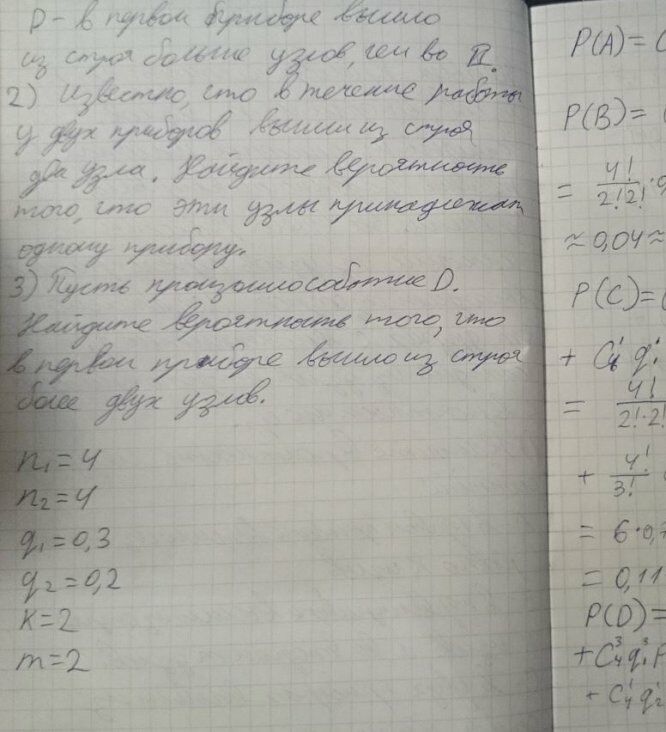 D - в первом приборе вышло
из строя больше узлов, чем во II.
2) Известно, что в течение работы
у двух приборов вышли из строя
два узла. Найдите вероятность
того, что эти узлы принадлежат
одному прибору.
3) Пусть произошло событие D.
Найдите вероятность того, что
в первом приборе вышло из строя
более двух узлов.
n₁=4
n₂=4
q₁=0,3
q₂=0,2
k=2
m=2
P(A)=
P(B)=
= 4!/2!2! ·
≈0,04≈
P(C)=
+ C₄¹ q₁¹
= 4!/2!·2!
+ 4!/3!
= 6·0,
= 0,11
P(D)=
+C₄³q₁³P
+ C₄¹ q₂¹